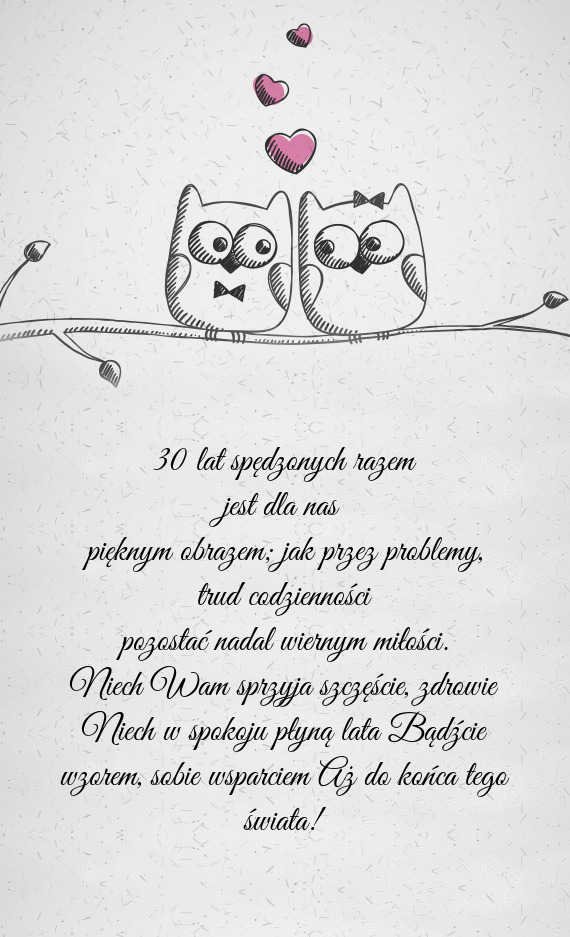 30 lat spędzonych razem
jest dla nas
pięknym obrazem; jak przez problemy,
trud codzienności
pozostać nadal wiernym miłości.
Niech Wam sprzyja szczęście, zdrowie
Niech w spokoju płyną lata Bądźcie
wzorem, sobie wsparciem Aż do końca tego
świata!